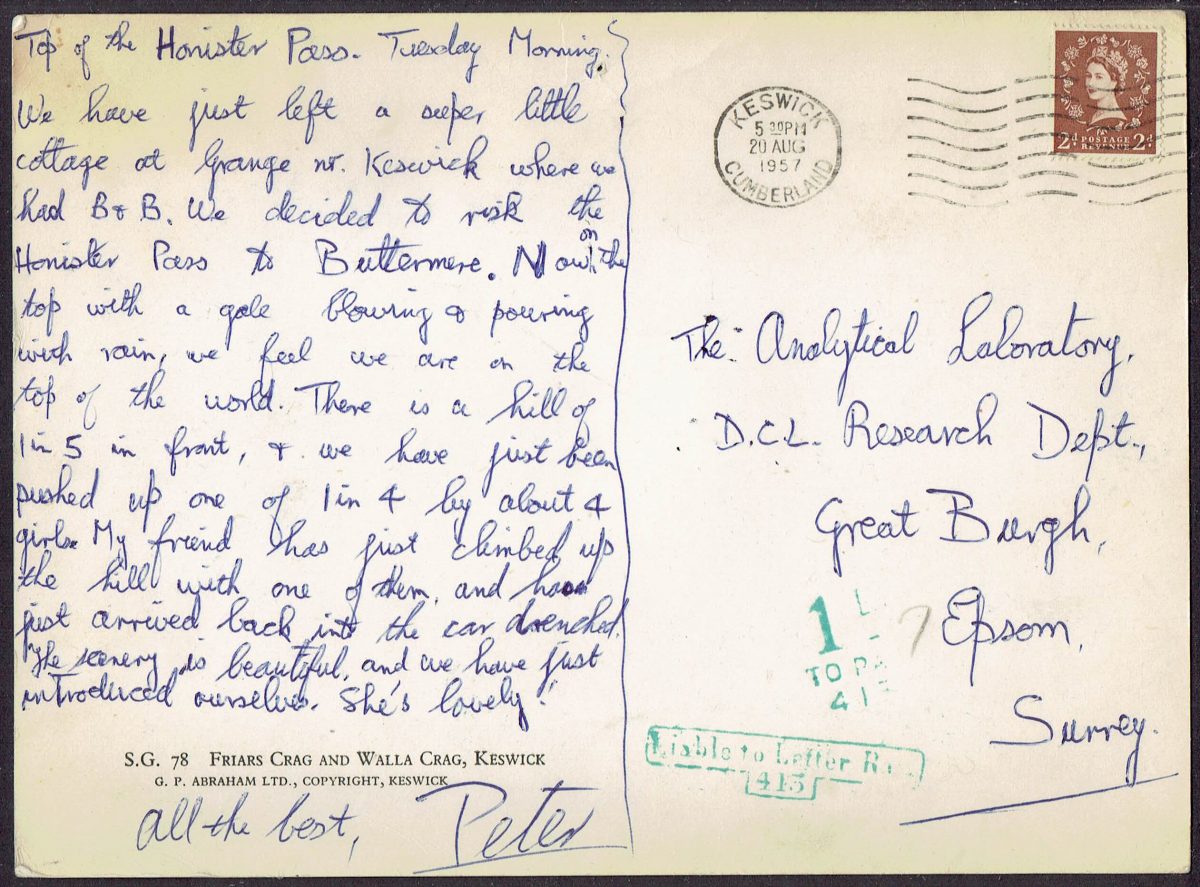 Top of the Honister Pass. Tuesday Morning.
We have just left a super little
cottage at Grange nr. Keswick where we
had B & B. We decided to risk the
Honister Pass to Buttermere. Now on the
top with a gale blowing & pouring
with rain, we feel we are on the
top of the world. There is a hill of
1 in 5 in front, & we have just been
pushed up one of 1 in 4 by about 4
girls. My friend has just climbed up
the hill with one of them, and have
just arrived back into the car drenched.
"The scenery is beautiful, and we have just
introduced ourselves. She's lovely!
S.G. 78 FRIARS CRAG AND WALLA CRAG, KESWICK
G. P. ABRAHAM LTD., COPYRIGHT, KESWICK
all the best,
Peter
KESWICK
5 30PM
20 AUG
1957
CUMBERLAND
2d POSTAGE 2d
REVENUE
The Analytical Laboratory,
D.C.L. Research Dept.,
Great Burgh,
Epsom,
Surrey.
1
TO PA
41
7
Liable to Letter R
413